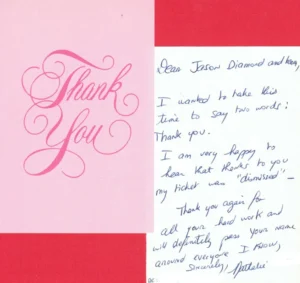 Thank
You
Dear Jason Diamond and
I wanted to take this
time to say two words:
Thank you.
I am very happy to
hear that thanks to you
my ticket was "dismissed" -
Thank you again for
all your hard work and
will definitely pass your name
around everyone I know,
Sincerely, Nathalie